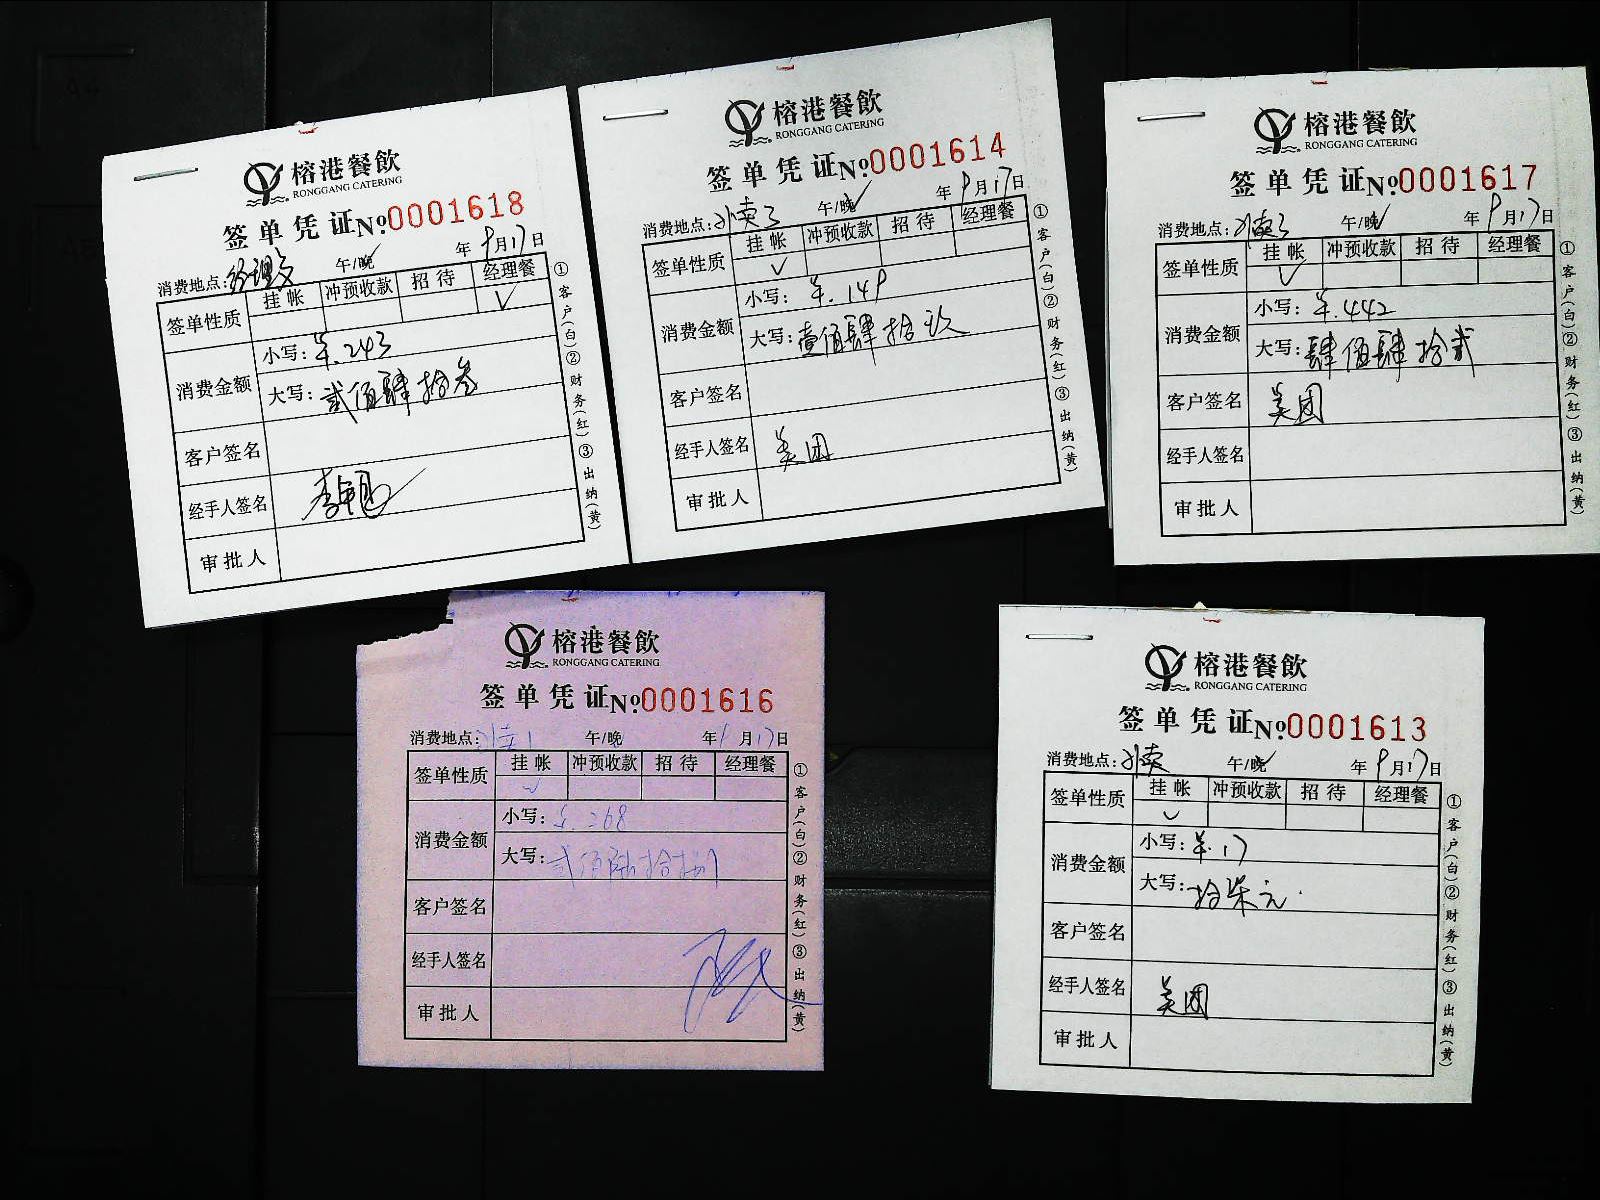 榕港餐飲
RONGGANG CATERING
签单凭证 No 0001618
消费地点: 午/晚 年 9月17日
签单性质 挂帐 冲预收款 招待 经理餐
✓
消费金额 小写: 羊.243
大写: 贰佰肆拾叁
客户签名
经手人签名
审批人
①客户(白)②财务(红)③出纳(黄)
榕港餐飲
RONGGANG CATERING
签单凭证 No 0001614
消费地点: 外卖3 午/晚 年 9月17日
签单性质 挂帐 冲预收款 招待 经理餐
✓
消费金额 小写: 羊.149
大写: 壹佰肆拾玖
客户签名
经手人签名 美团
审批人
①客户(白)②财务(红)③出纳(黄)
榕港餐飲
RONGGANG CATERING
签单凭证 No 0001617
消费地点: 外卖3 午/晚 年 9月17日
签单性质 挂帐 冲预收款 招待 经理餐
✓
消费金额 小写: 羊.442
大写: 肆佰肆拾贰
客户签名 美团
经手人签名
审批人
①客户(白)②财务(红)③出纳(黄)
榕港餐飲
RONGGANG CATERING
签单凭证 No 0001616
消费地点: 外卖1 午/晚 年 9月17日
签单性质 挂帐 冲预收款 招待 经理餐
✓
消费金额 小写: 羊.268
大写: 贰佰陆拾捌
客户签名
经手人签名
审批人
①客户(白)②财务(红)③出纳(黄)
榕港餐飲
RONGGANG CATERING
签单凭证 No 0001613
消费地点: 外卖 午/晚 年 9月17日
签单性质 挂帐 冲预收款 招待 经理餐
✓
消费金额 小写: 羊.17
大写: 拾柒元.
客户签名
经手人签名 美团
审批人
①客户(白)②财务(红)③出纳(黄)